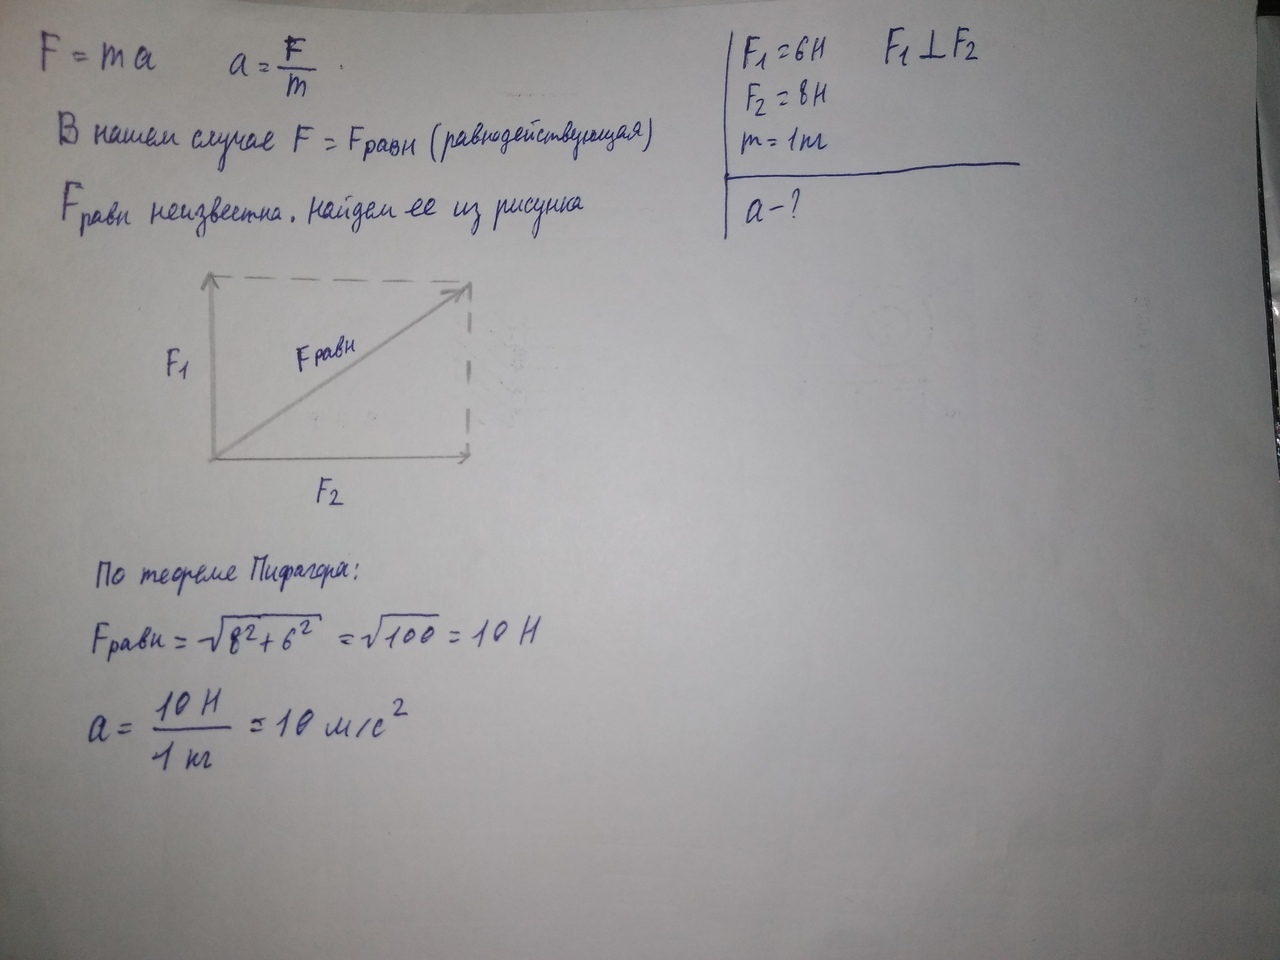 F = ma   a = F/m
В нашем случае F = Fравн (равнодействующая)
Fравн неизвестна. Найдем ее из рисунка
F₁ = 6Н   F₁ ⊥ F₂
F₂ = 8Н
m = 1кг
a - ?
F₁
Fравн
F₂
По теореме Пифагора:
Fравн = √(8² + 6²) = √100 = 10 Н
a = 10 Н / 1 кг = 10 м/с²